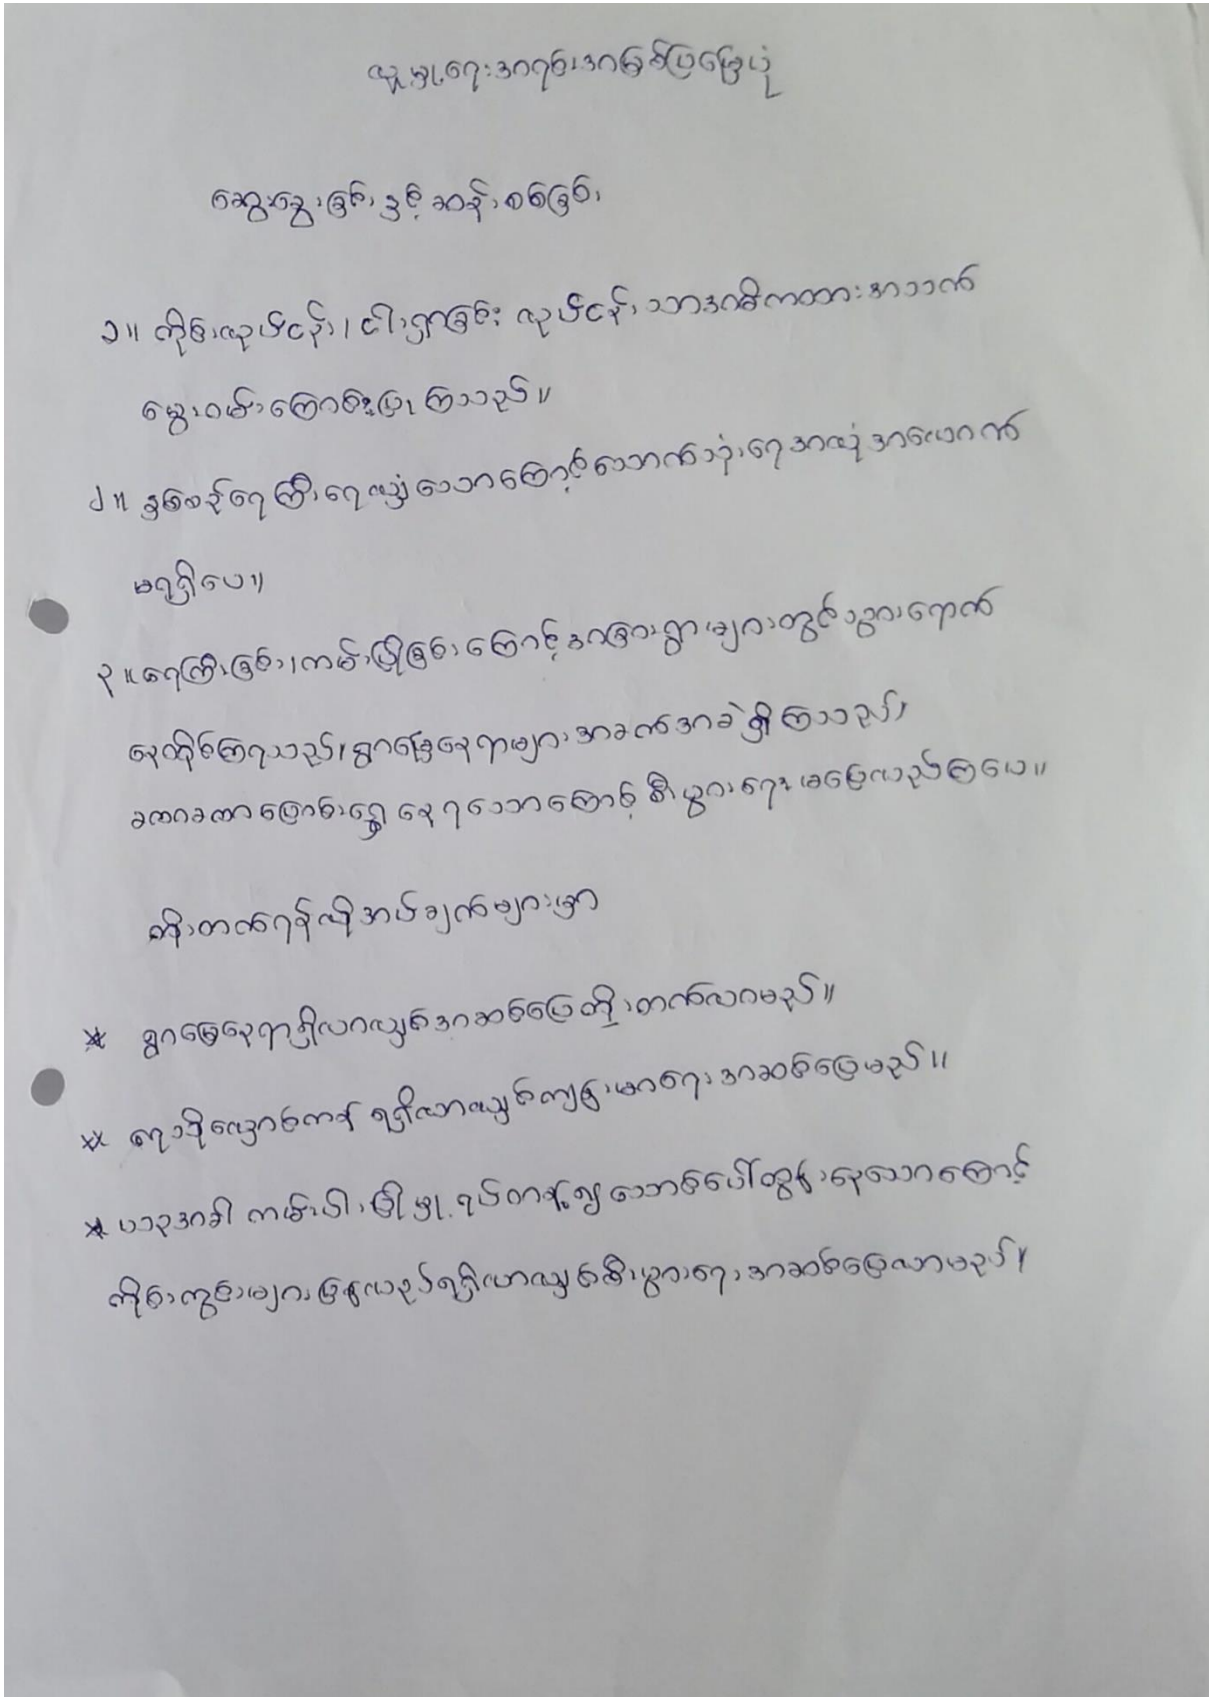 လူမှုရေးအရင်းအမြစ်ပြမြေပုံ
ဆွေးနွေးခြင်း နှင့် ဆန်းစစ်ခြင်း
၁။ ကိုင်းလုပ်ငန်း၊ ငါးရှာခြင်း လုပ်ငန်း သာအဓိကထားအသက်
မွေးဝမ်းကြောင်းပြုကြသည်။
၂။ နှစ်စဉ်ရေကြီးရေလျှံသောကြောင့်သောက်သုံးရေအလုံအလောက်
မရရှိပေ။
၃။ ရေကြီးခြင်း၊ ကမ်းပြိုခြင်းကြောင့်အခြားရွာများတွင်သွားရောက်
နေထိုင်ကြရသည်။ ရွာမြေနေရာများအခက်အခဲရှိကြသည်။
ခဏခဏပြောင်းရွှေ့နေရသောကြောင့်စီးပွားရေးမပြေလည်ကြပေ။
တိုးတက်ရန်လိုအပ်ချက်များမှာ
* ရွာမြေနေရာရှိလာလျှင်အဆင်ပြေတိုးတက်လာမည်။
* ရေသိုလှောင်ကန် ရရှိလာလျှင်ကျန်းမာရေးအဆင်ပြေမည်။
* ယခုအခါ ကမ်းပါးပြိုမှု ရပ်တန့်၍ သောင်ပေါ်ထွန်းနေသောကြောင့်
ကိုင်းကွင်းများပြန်လည်ရရှိလာလျှင်စီးပွားရေးအဆင်ပြေလာမည်။